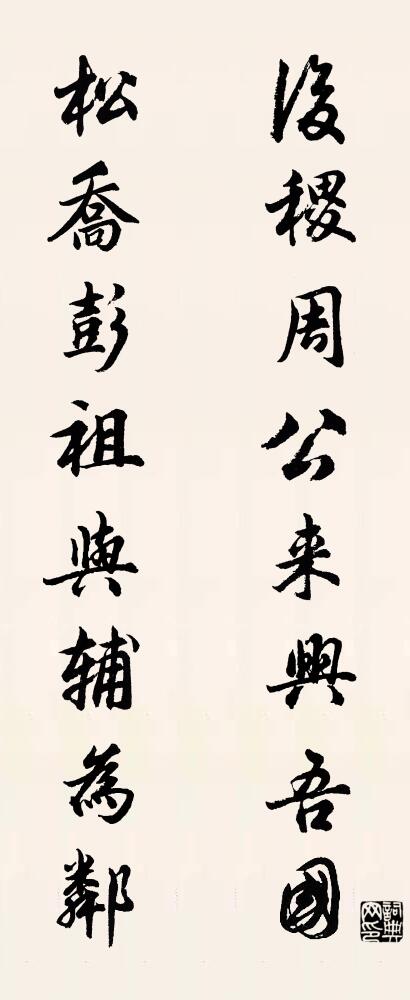 後稷周公来興吾國
松喬彭祖與辅為鄰
詞典网印